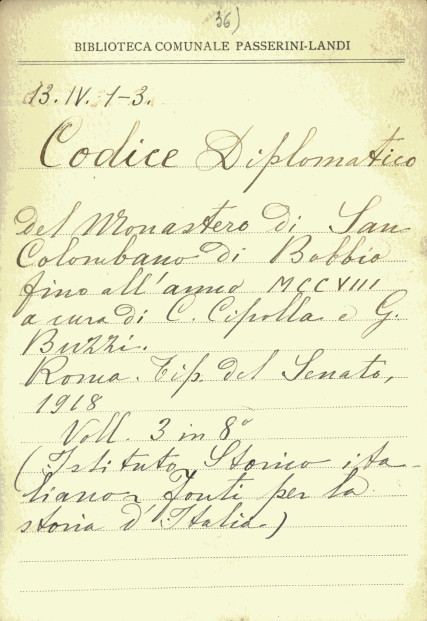 36)
BIBLIOTECA COMUNALE PASSERINI-LANDI
13. IV. 1-3.
Codice Diplomatico
del Monastero di San
Colombano di Bobbio
fino all'anno MCCVIII
a cura di C. Cipolla e G.
Buzzi.
Roma. Tip. del Senato,
1918
Voll. 3 in 8°
(Istituto Storico ita-
liano - Fonti per la
storia d'Italia.)